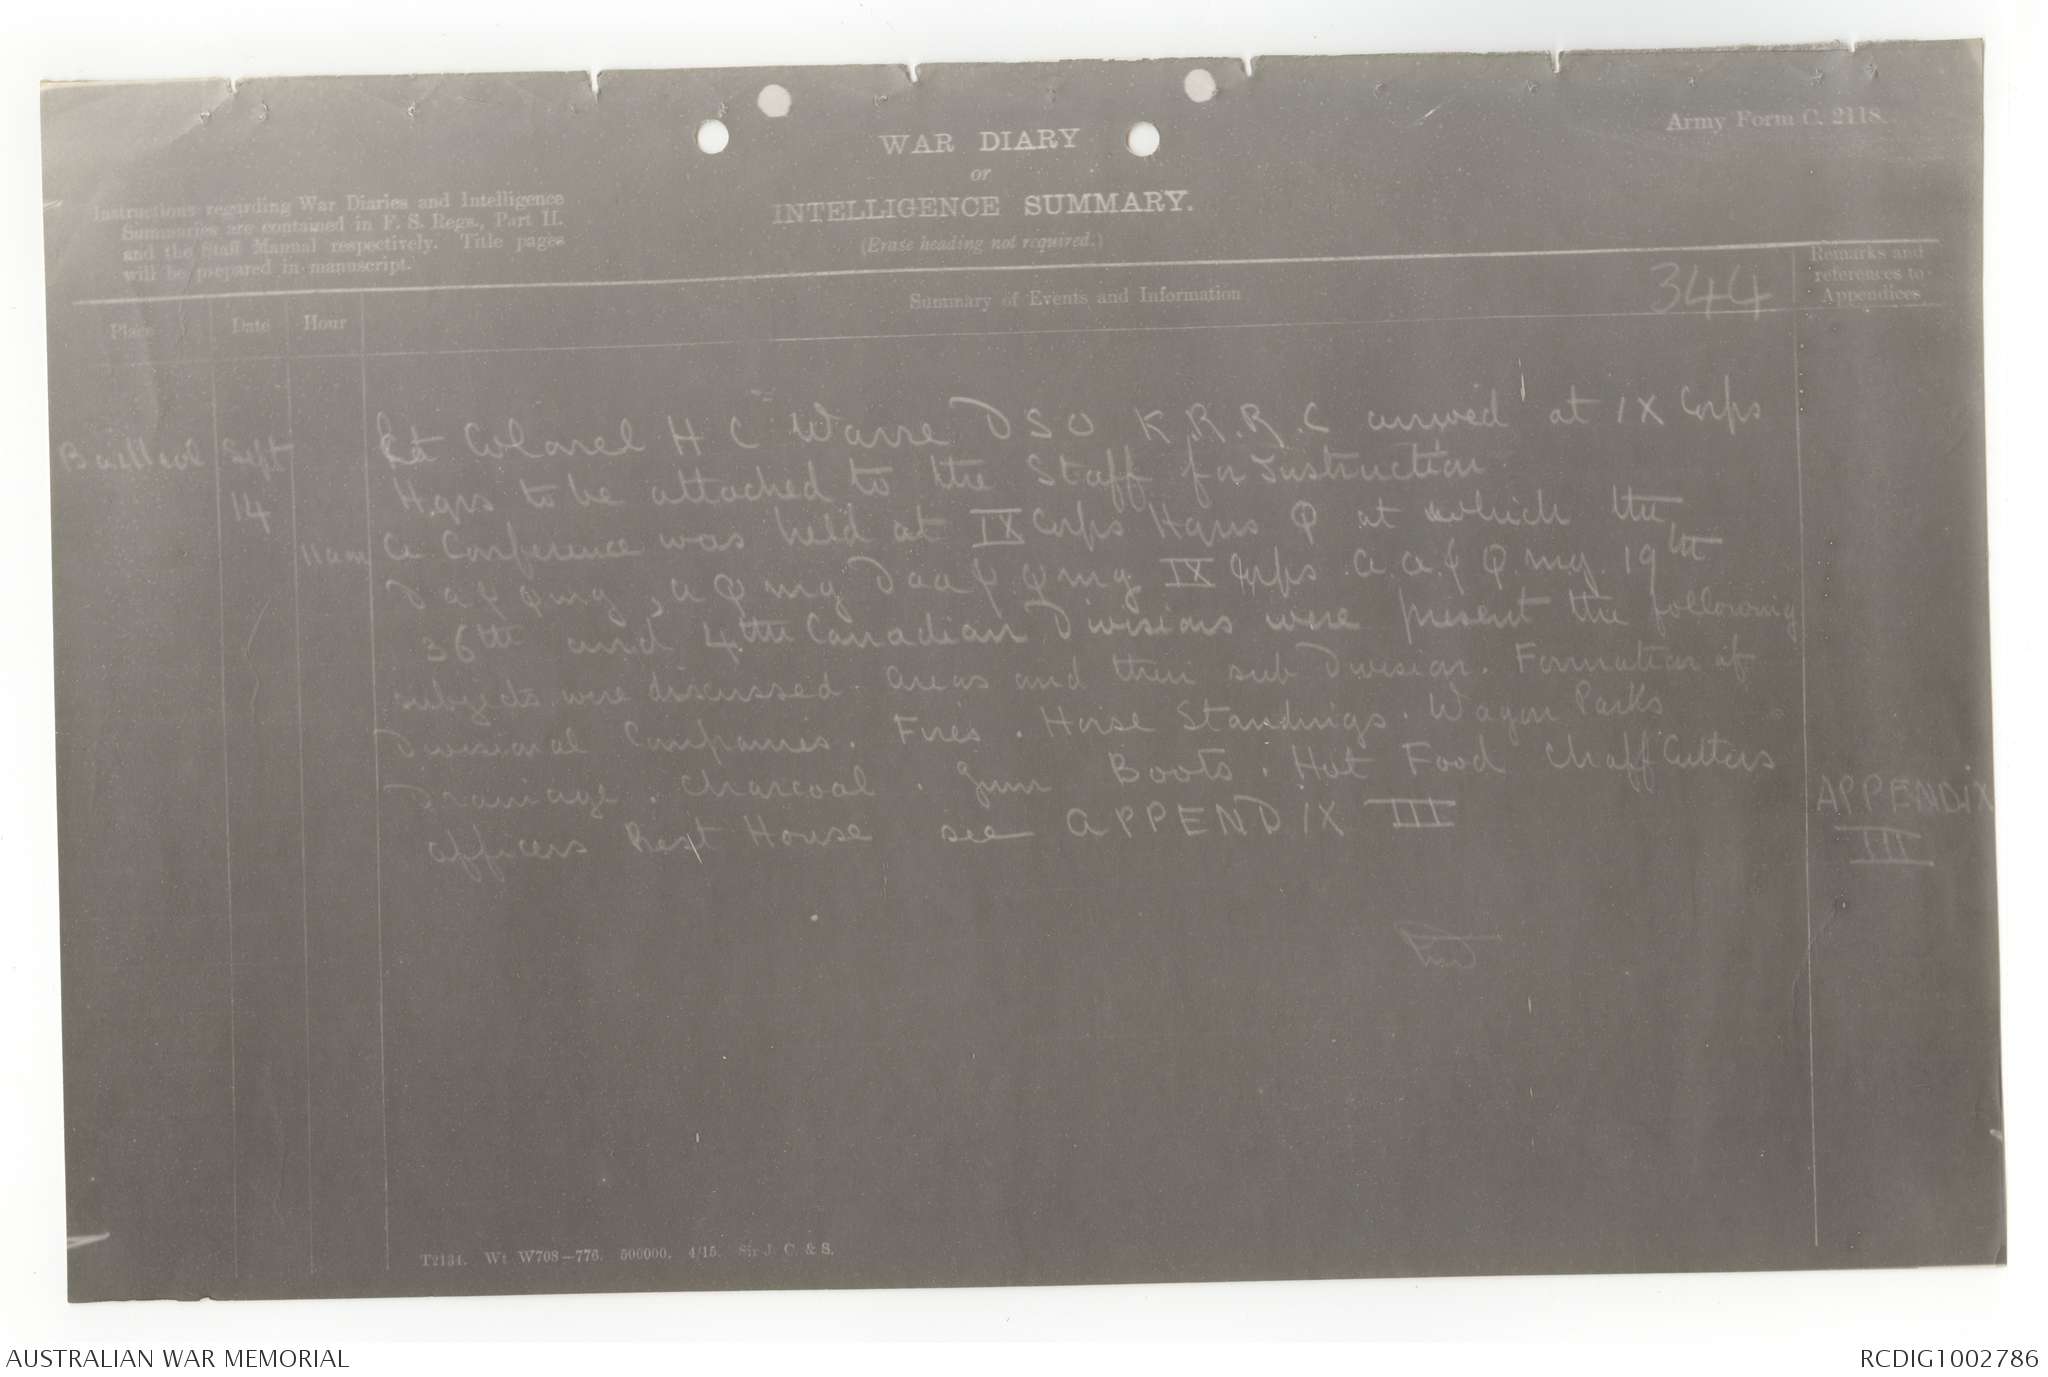 Army Form C. 2118.
WAR DIARY
or
INTELLIGENCE SUMMARY.
(Erase heading not required.)
Instructions regarding War Diaries and Intelligence
Summaries are contained in F. S. Regs., Part II.
and the Staff Manual respectively. Title pages
will be prepared in manuscript.
344
Place
Date
Hour
Summary of Events and Information
Remarks and
references to
Appendices
Bailleul Sept
14
11am
Lt Colonel H C Warre DSO K.R.R.C arrived at IX Corps
Hqrs to be attached to the Staff for Instruction
A Conference was held at IX Corps Hqrs Q at which the
DA & QMG, AQMG DAA & QMG IX Corps A.A. & QMG 19th
36th and 4th Canadian Divisions were present the following
subjects were discussed. Areas and their sub Division. Formation of
Divisional Companies. Fires. Horse Standings. Wagon Parks
Drainage. Charcoal. Gum Boots. Hot Food Chaff Cutters
officers Rest House see APPENDIX III
APPENDIX
III
T2134. Wt. W708—776. 500000. 4/15. Sir J. C. & S.
AUSTRALIAN WAR MEMORIAL
RCDIG1002786